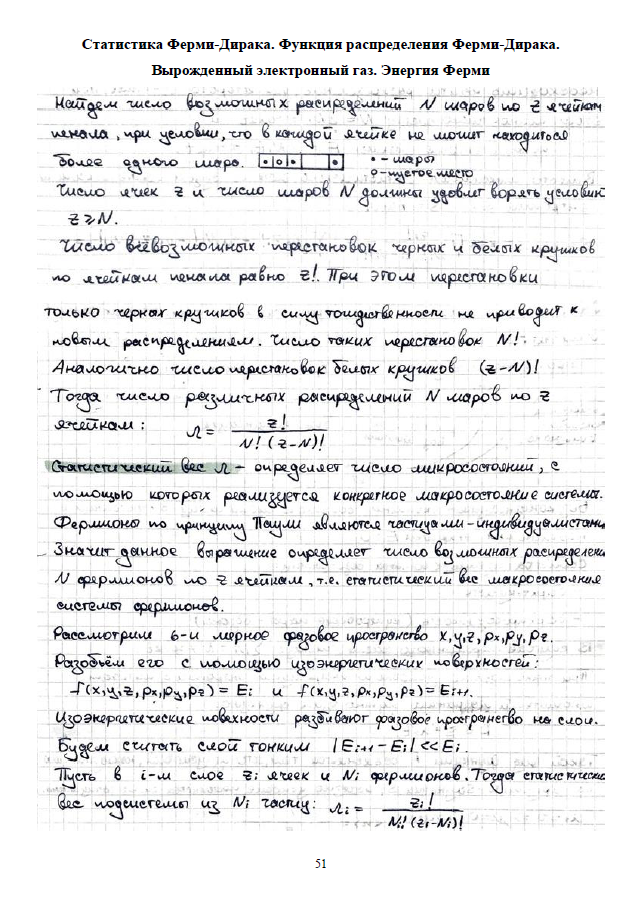 Статистика Ферми-Дирака. Функция распределения Ферми-Дирака.
Вырожденный электронный газ. Энергия Ферми
Найдем число возможных распределений N шаров по z ячейкам
пенала, при условии, что в каждой ячейке не может находиться
более одного шара. • – шары
о – пустое место
Число ячек z и число шаров N должны удовлетворять условию
z ≥ N.
Число всевозможных перестановок черных и белых кружков
по ячейкам пенала равно z!. При этом перестановки
только черных кружков в силу тождественности не приводит к
новым распределениям. Число таких перестановок N!
Аналогично число перестановок белых кружков (z-N)!
Тогда число различных распределений N шаров по z
ячейкам: Ω = z! / N! (z-N)!
Статистический вес Ω – определяет число микросостояний, с
помощью которых реализуется конкретное макросостояние системы.
Фермионы по принципу Паули являются частицами-индивидуалистами
Значит данное выражение определяет число возможных распределени
N фермионов по z ячейкам, т.е. статистический вес макросостояния
системы фермионов.
Рассмотрим 6-и мерное фазовое пространство x,y,z,px,py,pz.
Разобьём его с помощью изоэнергетических поверхностей:
f(x,y,z,px,py,pz) = Ei и f(x,y,z,px,py,pz) = Ei+1.
Изоэнергетические повехности разбивают фазовое пространство на слои.
Будем считать слой тонким |Ei+1 - Ei| << Ei.
Пусть в i-м слое zi ячеек и Ni фермионов. Тогда статистически
вес подсистемы из Ni частиц: Ωi = zi! / Ni! (zi-Ni)!
51